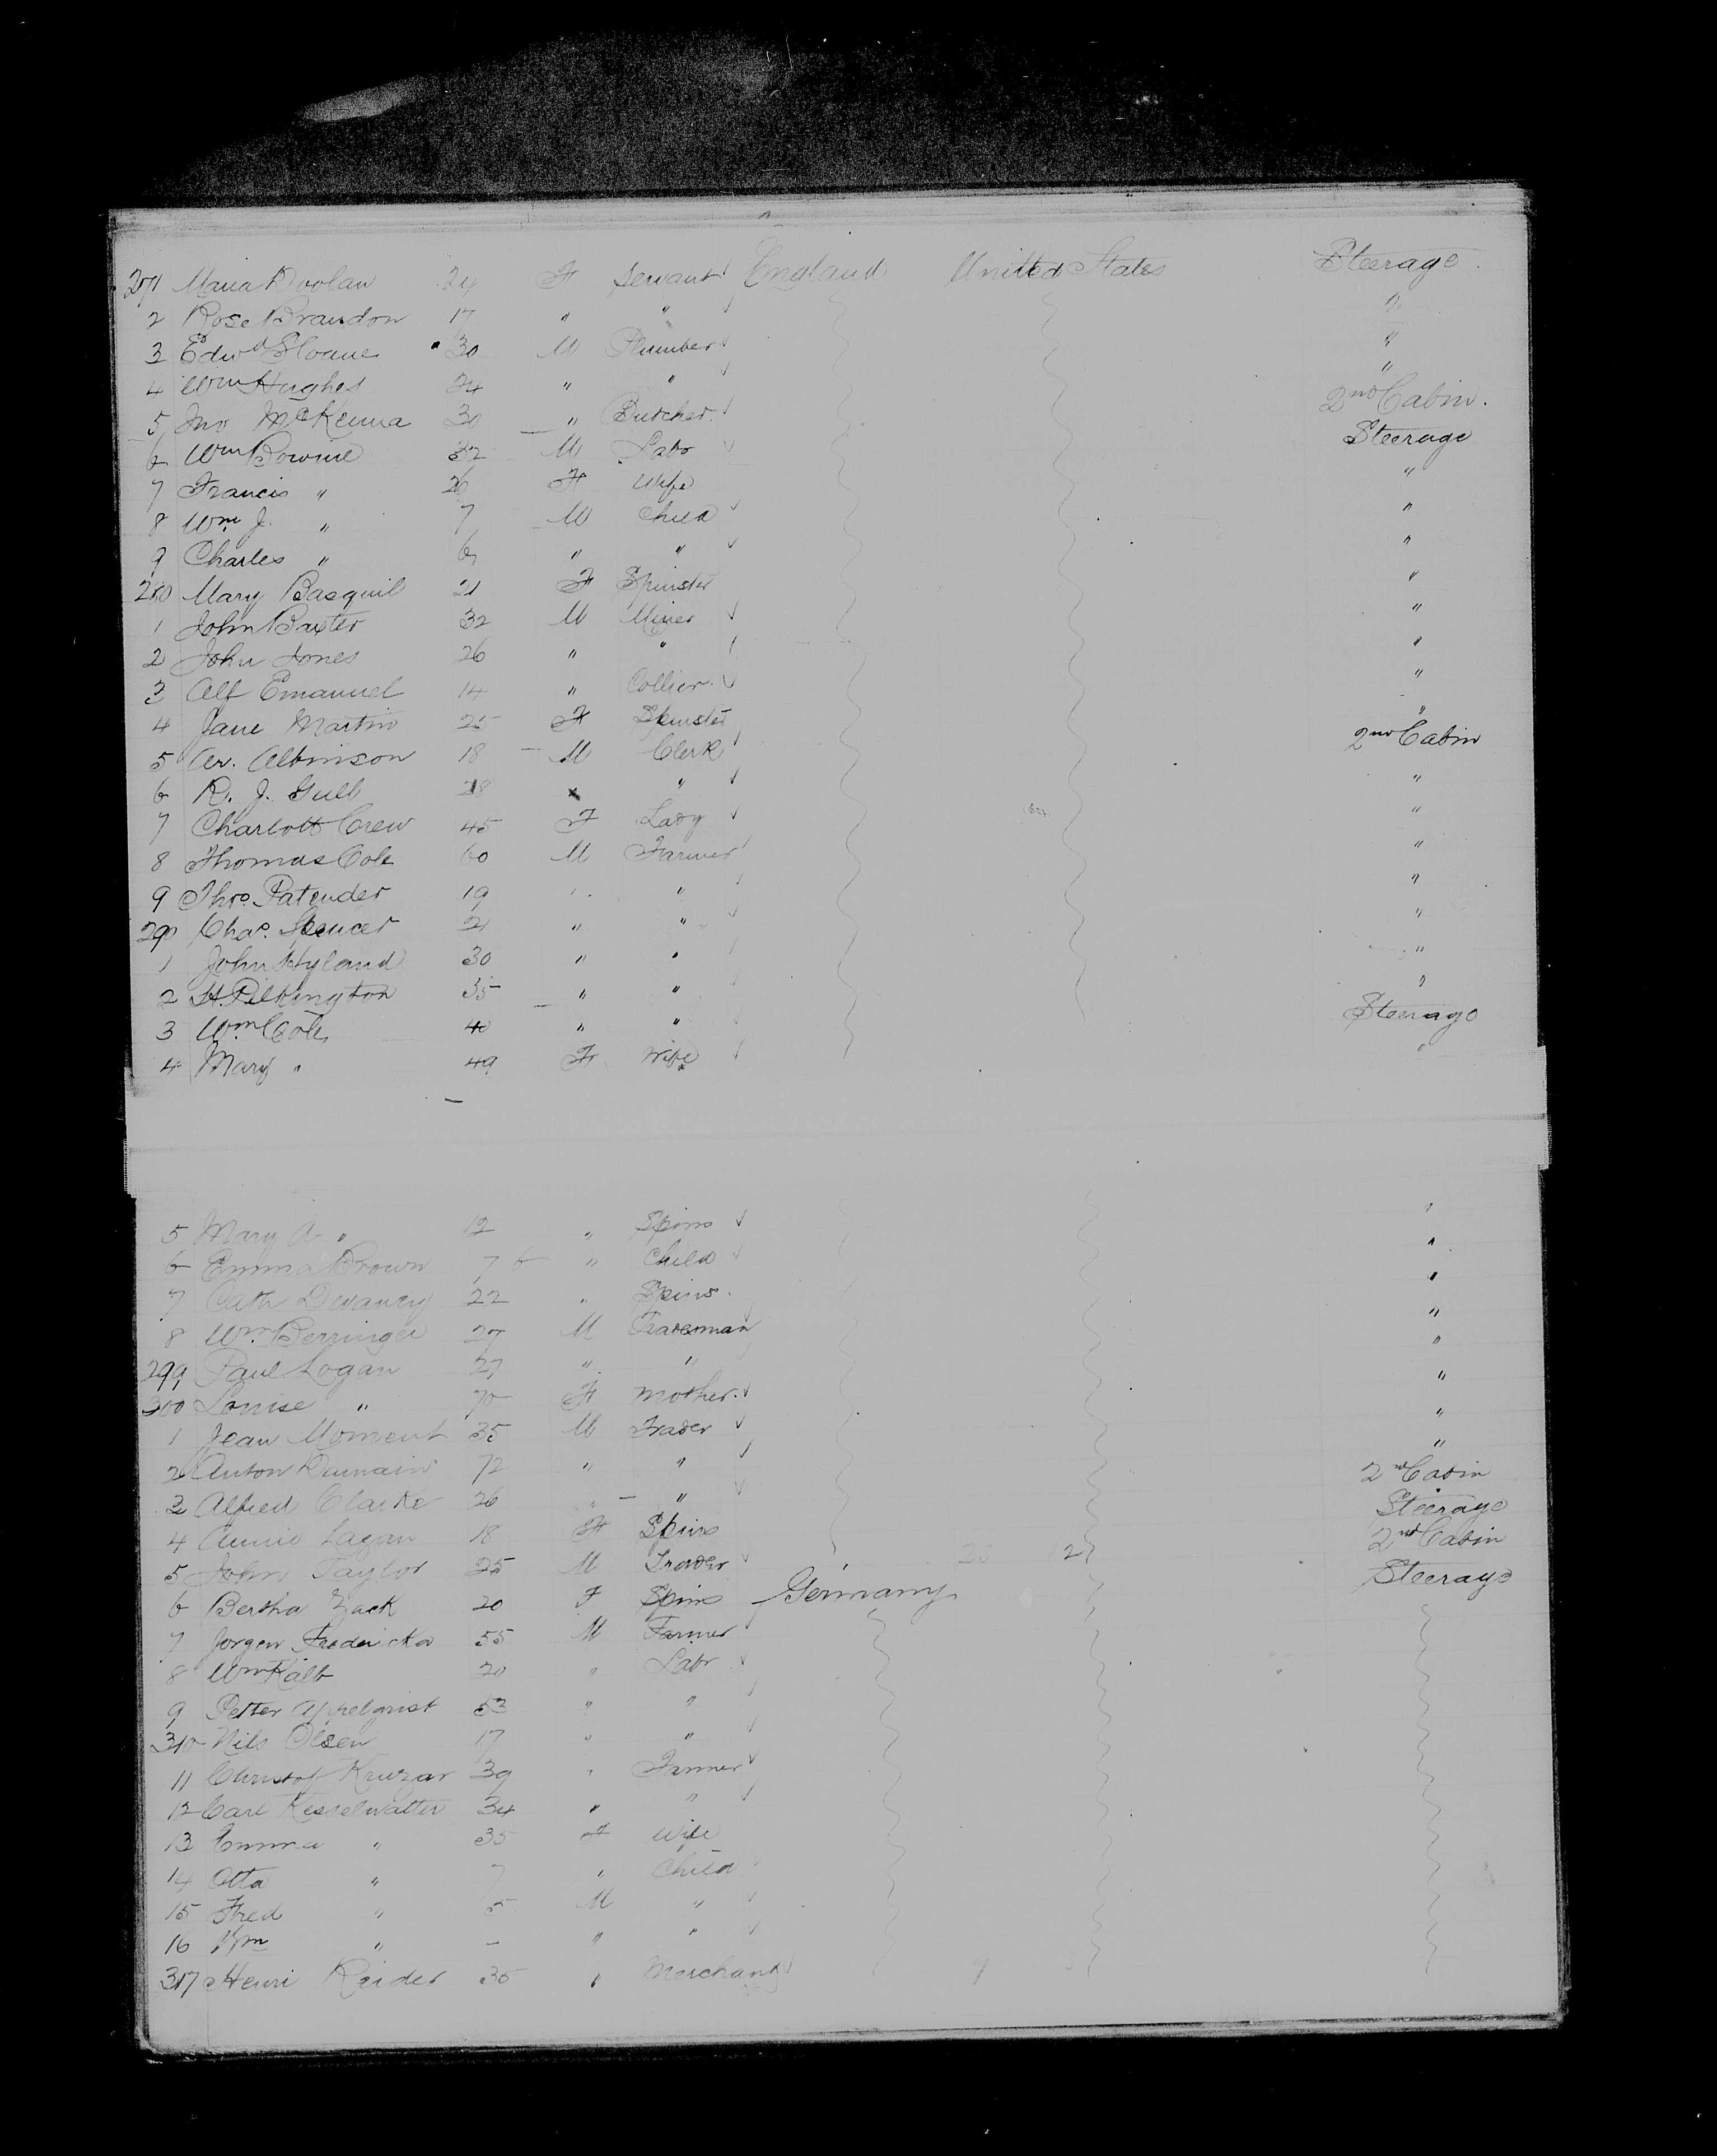 271 Maria Doolan 24 F Servant England United States Steerage
2 Rose Brandon 17 " " "
3 Edwd Sloane 30 M Plumber "
4 Wm Hughes 24 " " "
5 Jno McKenna 30 " Butcher 2nd Cabin.
6 Wm Bownie 32 M Labr Steerage
7 Francis " 26 F Wife "
8 Wm J. " 7 M Child "
9 Charles " 6 " " "
280 Mary Basquil 21 F Spinster "
1 John Baxter 32 M Miner "
2 John Jones 26 " " "
3 Alf Emanuel 14 " Collier "
4 Jane Martin 25 F Spinster "
5 Ar. Atkinson 18 M Clerk 2nd Cabin
6 R. J. Gull 28 " "
7 Charlott Crew 45 F Lady "
8 Thomas Cole 60 M Farmer "
9 Thos. Patender 19 " " "
290 Chas. Spencer 21 " " "
1 John Hyland 30 " " "
2 H. Pilkington 35 " " "
3 Wm Cole 40 " " Steerage
4 Mary " 49 F Wife "
5 Mary A " 12 " Spins "
6 Emma Brown 7 " Child "
7 Cath Devanny 22 " Spins. "
8 Wm Berringer 27 M Tradesman "
299 Paul Logan 27 " " "
300 Louise " 70 F Mother. "
1 Jean Moment 35 M Trader "
2 Anton Dumain 72 " " "
3 Alfred Clarke 26 " " 2nd Cabin
4 Annie Lagan 18 F Spins Steerage
5 John Taylor 25 M Trader 2nd Cabin
6 Bertha Zack 20 F Spins Germany Steerage
7 Jorgen Fredericka 55 M Farmer
8 Wm Kalb 20 " Labr
9 Petter Appelqvist 53 " "
310 Nils Olsen 17 " "
11 Christof Kruzar 39 " Farmer
12 Carl Kesselwatter 34 " "
13 Emma " 35 F Wife
14 Otta " 7 " Child
15 Fred " 5 M "
16 Wm " – " "
317 Henri Reider 36 " Merchant